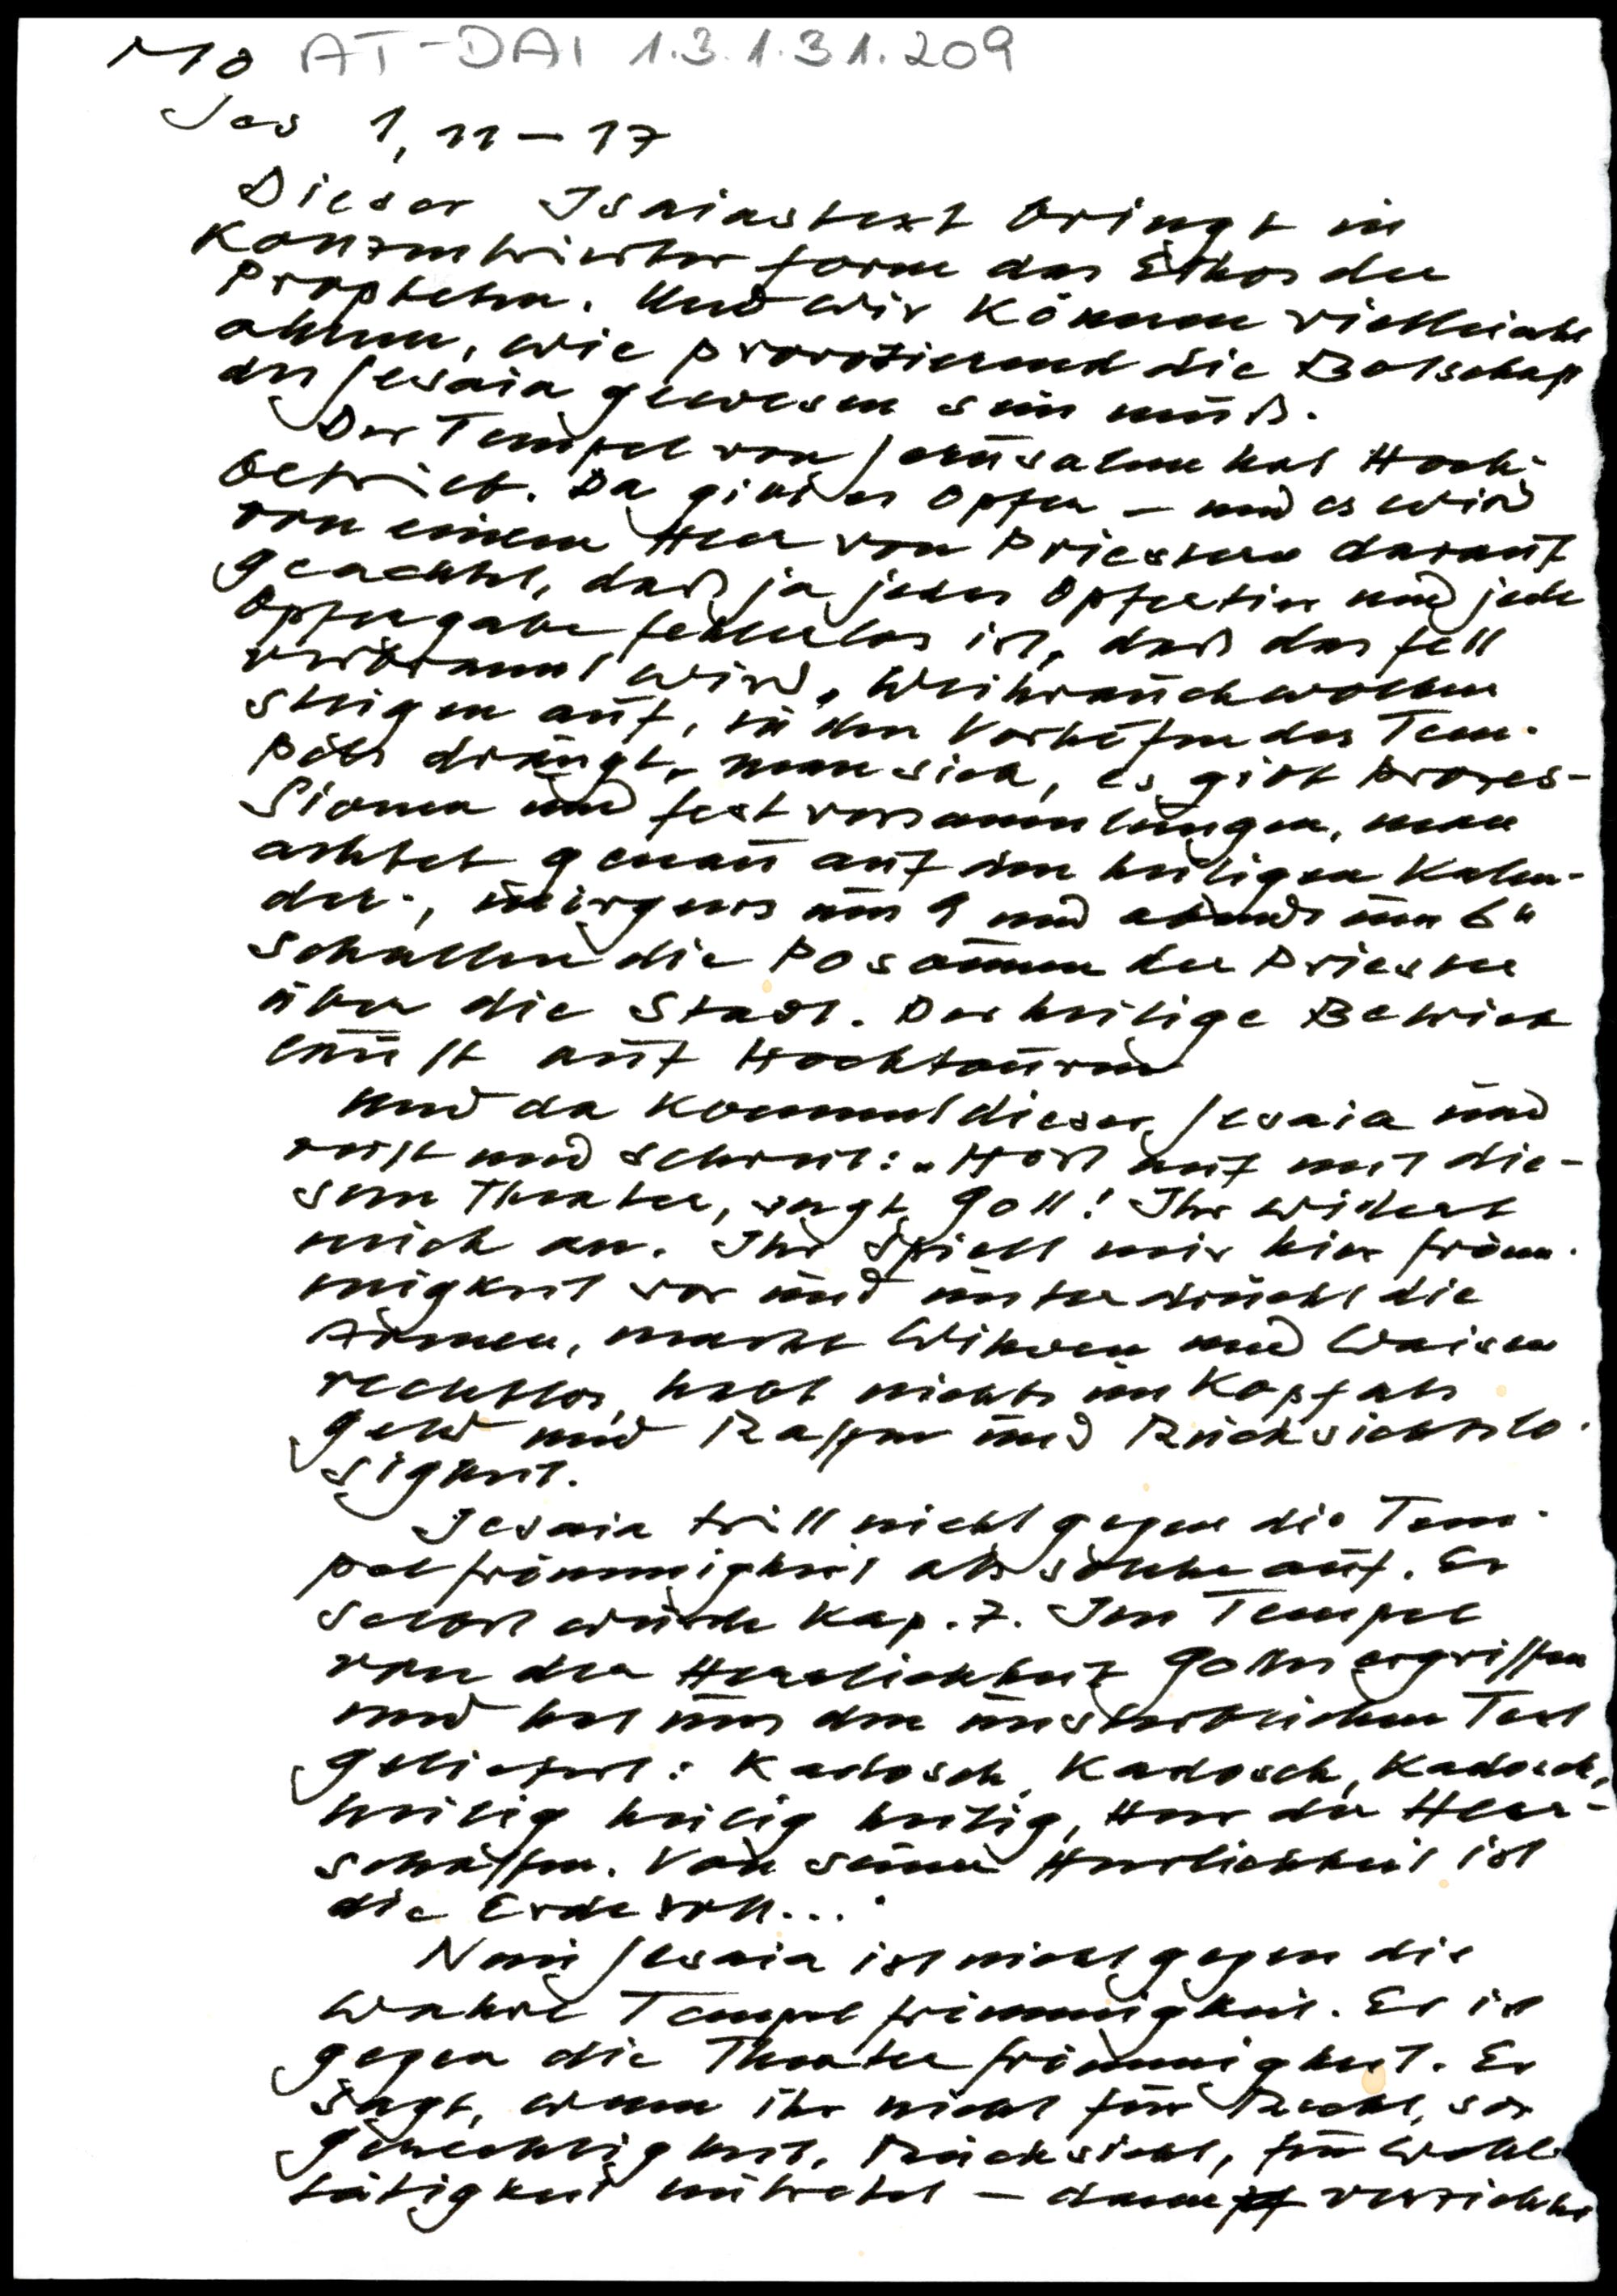 Mo AT-DAI 1.3.1.31.209
Jes 1, 11 – 17
Dieser Isaiastext bringt in
konzentrierter Form das Ethos der
Propheten. Und wir können vielleicht
ahnen, wie provozierend die Botschaft
des Jesaia gewesen sein muß.
Der Tempel von Jerusalem hat Hoch-
betrieb. Da gibt es Opfer – und es wird
von einem Heer von Priestern darauf
geachtet, daß ja jedes Opfertier und jede
Opfergabe fehlerlos ist, daß das Fett
verbrannt wird, Weihrauchwolken
steigen auf, in den Vorhöfen des Tem-
pels drängt man sich, es gibt Prozes-
sionen und Festversammlungen, man
achtet genau auf den heiligen Kalen-
der, morgens um 9 und abends um 6h
schallen die Posaunen der Priester
über die Stadt. Der heilige Betrieb
läuft auf Hochtouren
Und da kommt dieser Jesaia und
ruft und schreit: „Hört auf mit die-
sem Theater, sagt Gott! Ihr widert
mich an. Ihr spielt mir hier Fröm-
migkeit vor und unterdrückt die
Armen, macht Witwen und Waisen
rechtlos, habt nichts im Kopf als
Geld und Raffen und Rücksichtslo-
sigkeit.
Jesaia tritt nicht gegen die Tem-
pelfrömmigkeit als solche auf. Er
selbst wurde Kap. 7. Im Tempel
von der Herrlichkeit Gottes ergriffen
und hat uns den unsterblichen Text
geliefert: Kadosch, Kadosch, Kadosch,
heilig heilig heilig, Herr der Heer-
schaffen. Von seiner Herrlichkeit ist
die Erde voll...
Nein Jesaia ist nicht gegen die
wahre Tempelfrömmigkeit. Er ist
gegen die Theaterfrömmigkeit. Er
sagt, wenn ihr nicht für Recht, vor
Gerechtigkeit, Rücksicht, für Wohl-
tätigkeit eintretet – dann verzichte